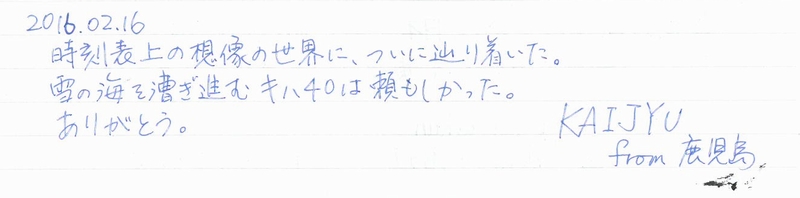 2016.02.16
時刻表上の想像の世界に、ついに辿り着いた。
雪の海を漕ぎ進むキハ40は頼もしかった。
ありがとう。
KAIJYU
from 鹿児島